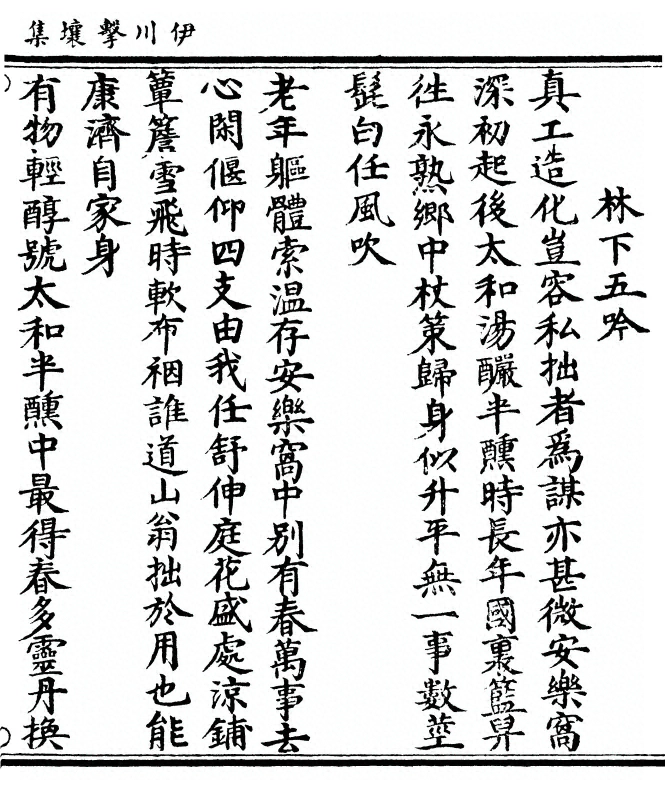 伊川擊壤集
林下五吟
真工造化豈容私拙者爲謀亦甚微安樂窩
深初起後太和湯釅半醺時長年國裏籃舁
徃永熟鄉中杖策歸身似升平無一事數莖
髭白任風吹
老年軀體索温存安樂窩中別有春萬事去
心閑偃仰四支由我任舒伸庭花盛處涼鋪
簟簷雪飛時軟布裀誰道山翁拙於用也能
康濟自家身
有物輕醇號太和半醺中最得春多靈丹換